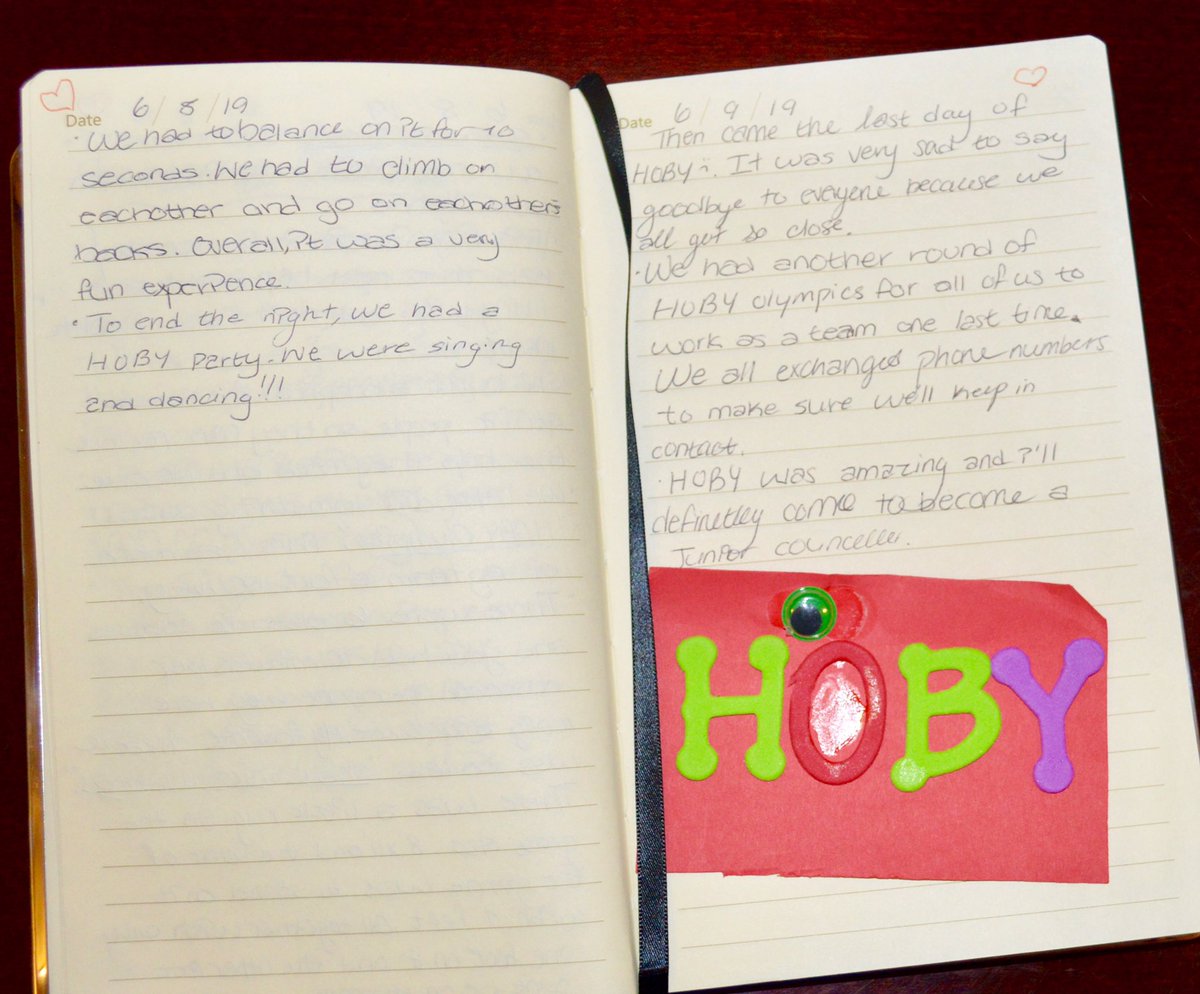 Date 6/8/19
• We had to balance on it for 10
seconds. We had to climb on
eachother and go on eachother's
backs. Overall, it was a very
fun experience.
• To end the night, we had a
HOBY party. We were singing
and dancing!!!
Date 6/9/19
Then came the last day of
HOBY :(. It was very sad to say
goodbye to everyone because we
all got so close.
• We had another round of
HOBY olympics for all of us to
work as a team one last time.
We all exchanged phone numbers
to make sure we'll keep in
contact.
• HOBY was amazing and i'll
definetley come to become a
Junior counceller.
HOBY